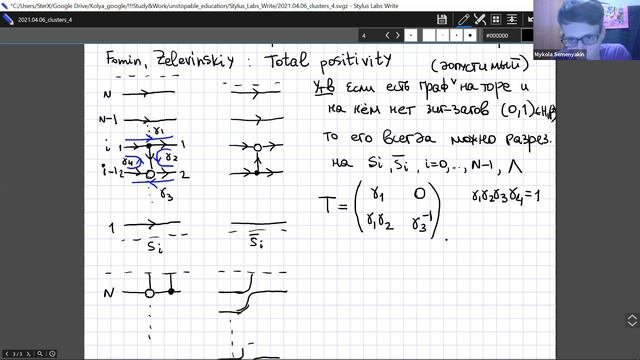 *C:/Users/SterX/Google Drive/Kolya_google/!!!Study&Work/unstopable_education/2021.04.06_clusters_4.svgz - Stylus Labs Write
2021.04.06_clusters_4
4
#000000
Mykola Semenyakin
Fomin, Zelevinskiy : Total positivity
(допустимый)
Утв если есть граф на торе и
на нём нет зиг-загов (0,1)∈H₁
то его всегда можно разрез.
на Si, S̄i, i=0,..,N-1, Λ
T = ( γ1 0
γ1γ2 γ3⁻¹ ) .
γ1γ2γ3γ4=1
N
N-1
γ1
i 1 1
γ4 γ2
i-1 2 2
γ3
1
Si
S̄i
N
3/3